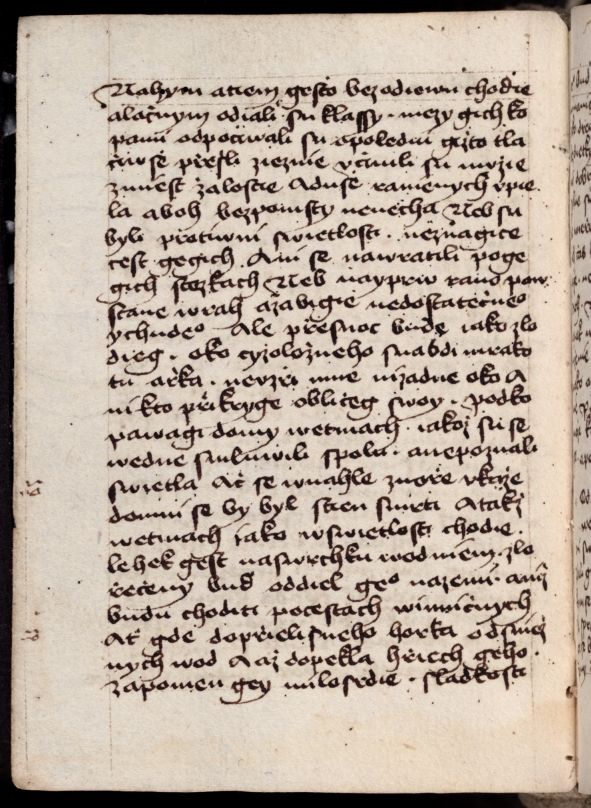 Nahym atiem gesto bez odiewu chodie
alačnym odiali su klassy · mezy gich ko
pami odpočiwali su opoledni gizto tla
čiwše přessli zieznie včinili su muzie
zmiest žalostie Aduše ranienych vpie
la aboh bezpomsty nenecha Neb su
byli protiwni swietlosti · neznagice
cest gegich Ani se nawratili poge
gich stezkach Neb nayprw rano pow
stane wrah azabigie nedostatečneo
ychudeo Ale přesnoc bude iako zlo
dieg · oko cyzolozneho snabdi mrako
tu arka · nevzři mne nizadne oko A
nikto přikryge obličeg swoy · Podko
pawagi domy wetmach · iakoz su se
wedne smluwili spolu · anepoznali
swietla Ač se wnahle zuoře vkaze
domni se by byl stien smrti Atakz
wetmach iako wswietlosti chodie ·
lehek gest naswrchku wod niem · zlo
řečeny bud oddiel geo nazemi · aniz
budu choditi pocestach winničnych
Ač gde dopřielisneho horka odsniez
nych wod Aaz dopekla hřiech geho ·
zapomen gey milosrdie · sladkosti